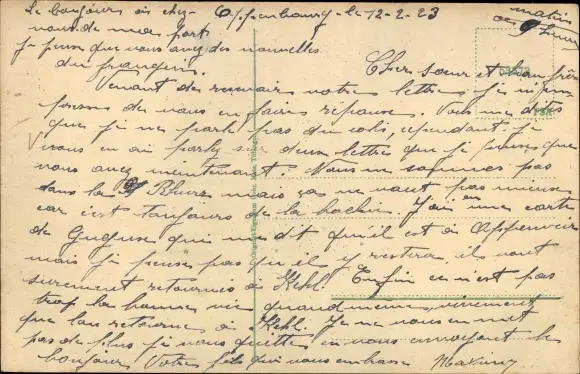 Le bonjour à chez
nous de ma part
je pense que vous avez des nouvelles
du frangin.
Offenbourg le 12-2-23
matin
9 heures
Cher sœur et beau frère
Venant de recevoir votre lettre je m'em-
presse de vous en faire réponse. Vous me dites
que je ne parle pas du colis, cependant je
vous en ai parlé sur deux lettres que je pense que
vous avez maintenant. Nous ne sommes pas
dans la Rhur mais ça ne vaut pas mieux
car c'est toujours de la J'ai eu une carte
de Gugusse qui me dit qu'il est à Appenweier
mais je pense pas qu'il y restera, il vont
surement retourner à Kehl. Enfin ce n'est pas
trop la bonne vie quand même, vivement
que l'on retourne à Kehl. Je ne vous en met
pas de plus je vous quitte en vous envoyant le
bonjour Votre qui vous embrasse